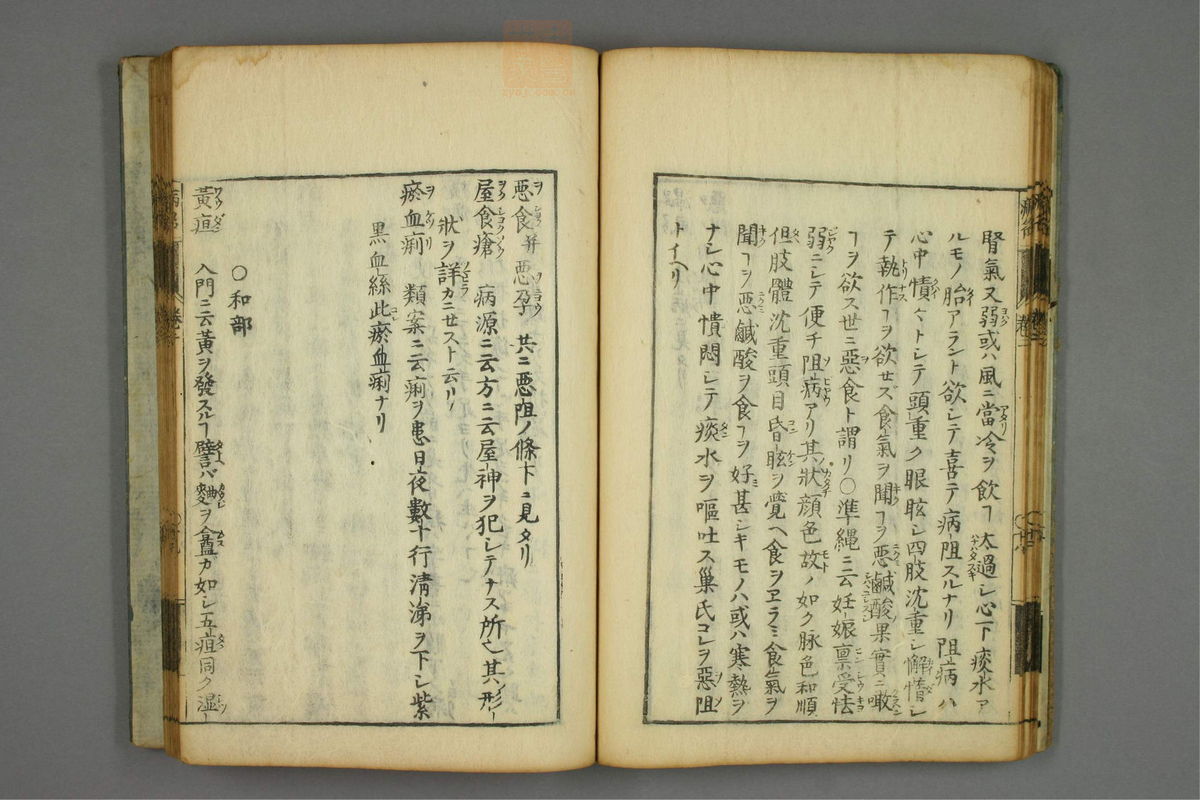 腎氣又弱或ハ風ニ當冷ヲ飲ヿ太過シ心下痰水ア
ルモノ胎アラント欲シテ喜テ病阻スルナリ阻病ハ
心中憒々トシテ頭重ク眼眩シ四肢沈重シ懈惰シ
テ執作ヿヲ欲セズ食氣ヲ聞ヿヲ惡鹹酸果實ニ噉
ヿヲ欲ス世ニ惡食ト謂リ〇準繩ニ云妊娠禀受怯
弱ニシテ便チ阻病アリ其狀顔色故ノ如ク脉色和順
但肢體沈重頭目昏眩ヲ覺ヘ食ヲヱラミ食氣ヲ
聞ヿヲ惡鹹酸ヲ食ヿヲ好甚シキモノハ或ハ寒熱ヲ
ナシ心中憒悶シテ痰水ヲ嘔吐ス巢氏コレヲ惡阻
トイヘリ
惡食并惡孕 共ニ惡阻ノ條下ニ見タリ
屋食瘡 病源ニ云方ニ云屋神ヲ犯シテナス所之其形
狀ヲ詳カニセストナリ
瘀血痢 類案ニ云痢ヲ患日夜數十行清涕ヲ下シ紫
黒血絲此瘀血痢ナリ
〇和部
黃疸 入門ニ云黃ヲ發スルヿ譬バ麴ヲ盦カ如シ五疸同ク湿